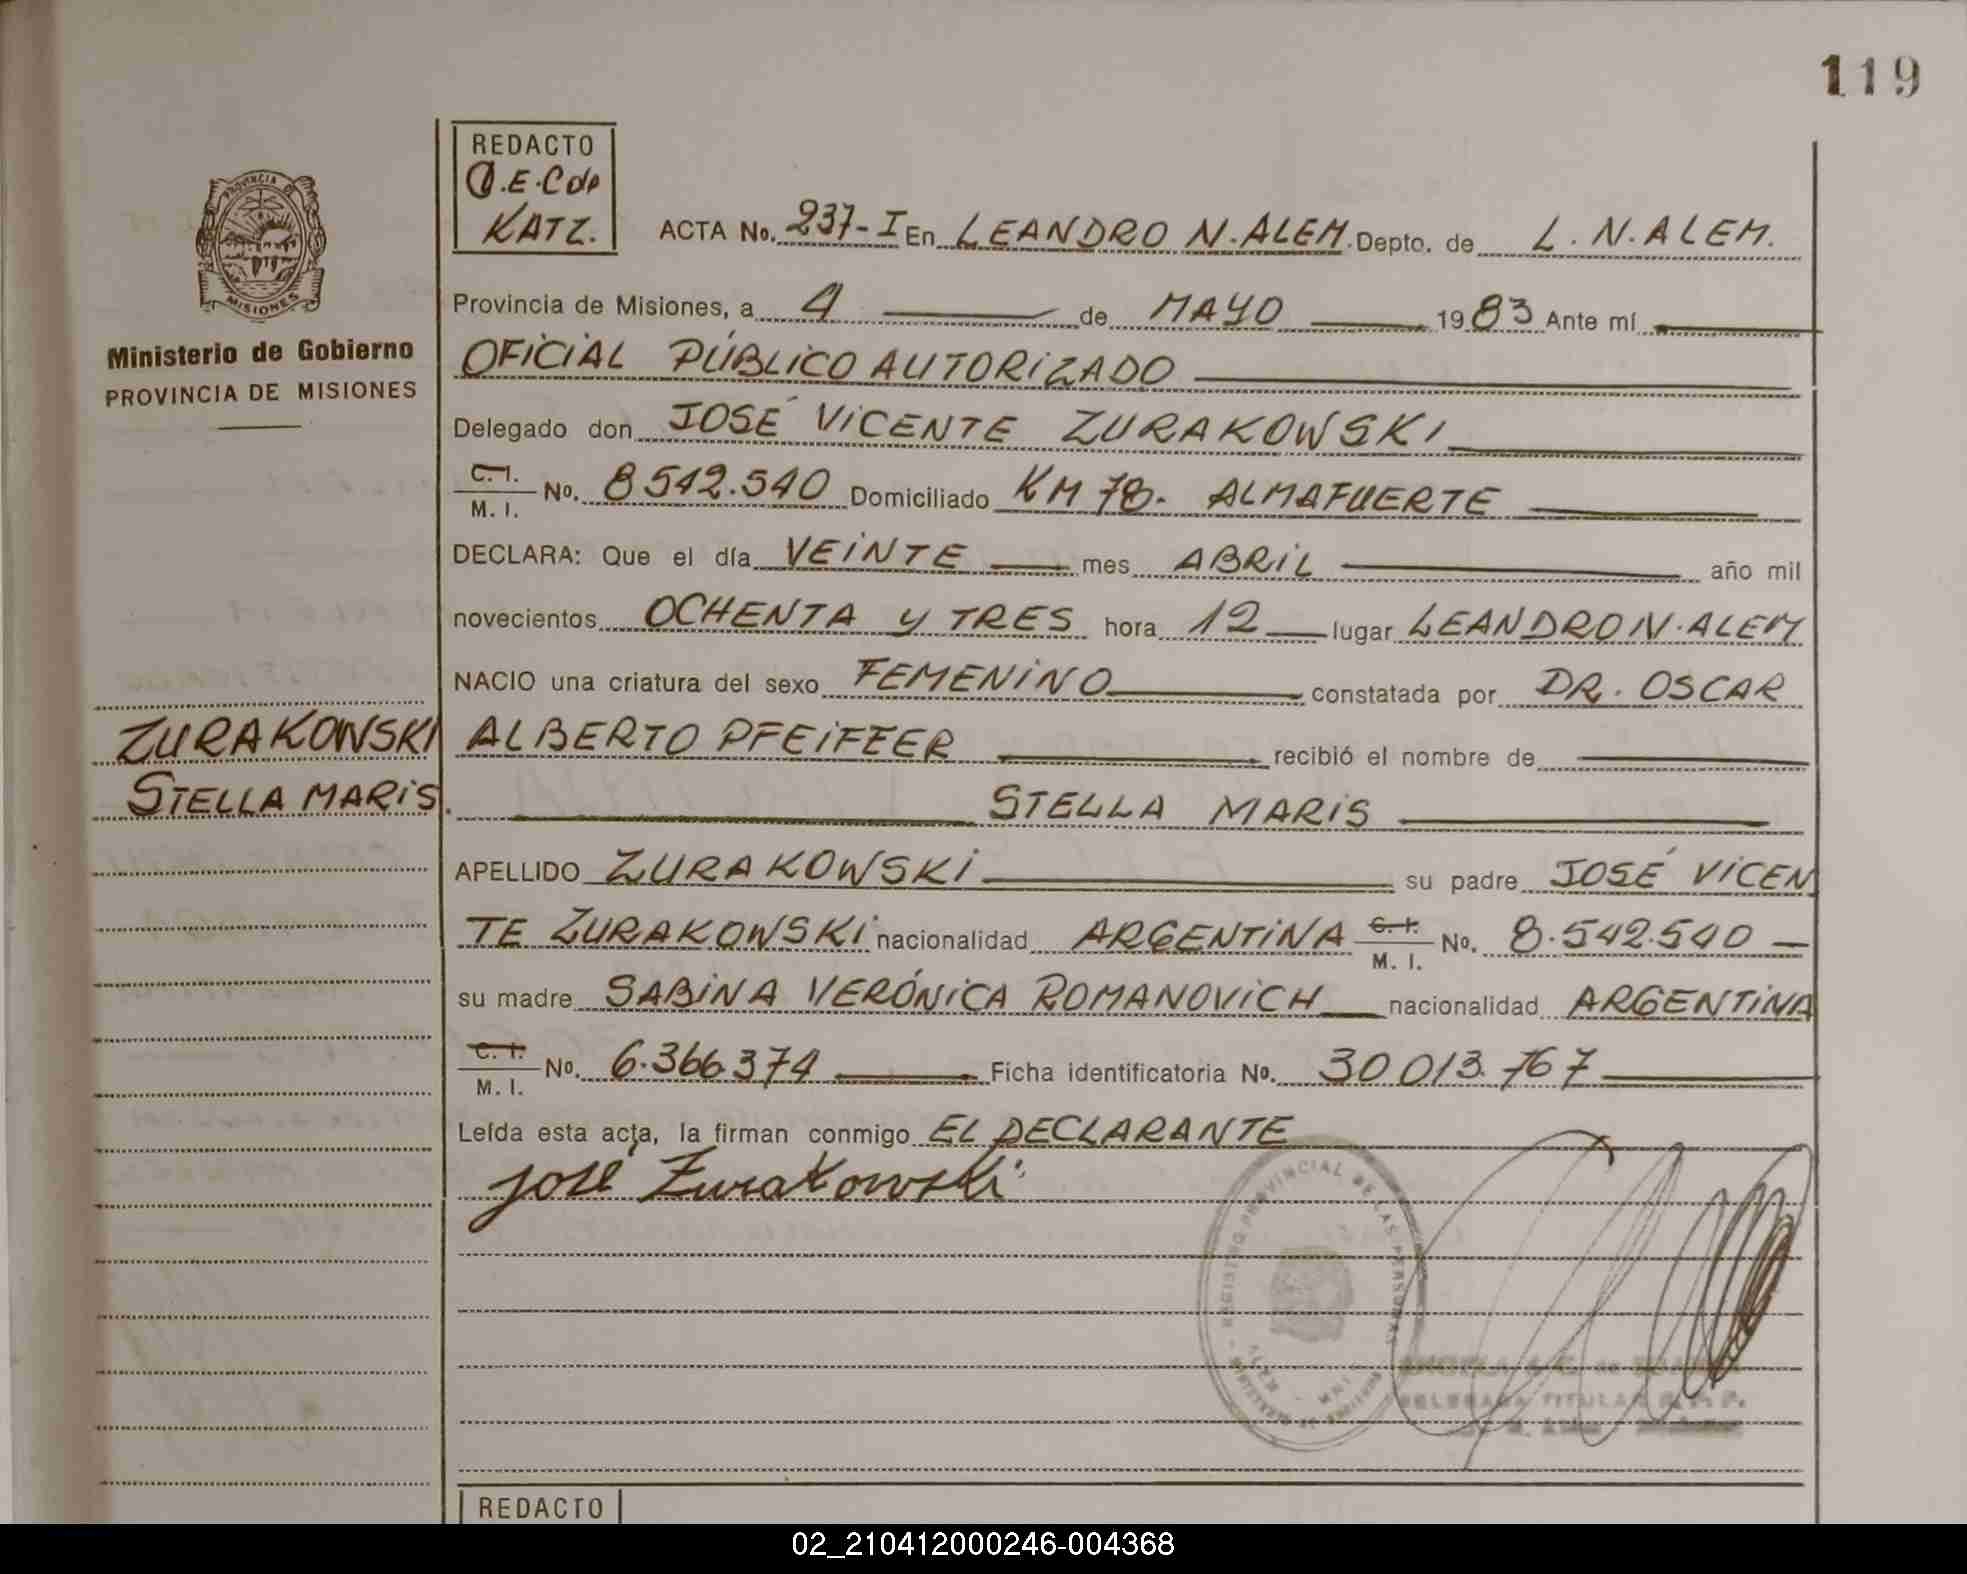 119
REDACTO
KATZ.
PROVINCIA DE
MISIONES
Ministerio de Gobierno
PROVINCIA DE MISIONES
ACTA No. 237-I En LEANDRO N. ALEM. Depto. de L. N. ALEM.
Provincia de Misiones, a 4 de MAYO 1983 Ante mí
OFICIAL PÚBLICO AUTORIZADO
Delegado don JOSÉ VICENTE ZURAKOWSKI
C. I.
M. I. No. 8542.540 Domiciliado KM 78. ALMAFUERTE
DECLARA: Que el día VEINTE mes ABRIL año mil
novecientos OCHENTA y TRES hora 12 lugar LEANDRO N. ALEM
NACIO una criatura del sexo FEMENINO constatada por DR. OSCAR
ZURAKOWSKI ALBERTO PFEIFFER recibió el nombre de
STELLA MARIS. STELLA MARIS
APELLIDO ZURAKOWSKI su padre JOSÉ VICEN
TE ZURAKOWSKI nacionalidad ARGENTINA C. I.
M. I. No. 8.542.540
su madre SABINA VERÓNICA ROMANOVICH nacionalidad ARGENTINA
C. I.
M. I. No. 6.366.374 Ficha identificatoria No. 30 013.767
Leída esta acta, la firman conmigo EL DECLARANTE
José Zurakowski
REGISTRO PROVINCIAL DE LAS PERSONAS
DELEGADA TITULAR R. P. P.
REDACTO
02_210412000246-004368